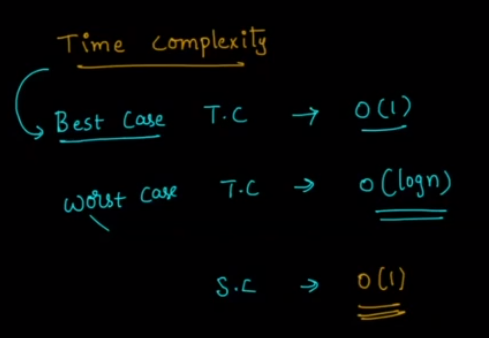 Time Complexity
Best Case T.C → O(1)
Worst Case T.C → O(logn)
S.C → O(1)